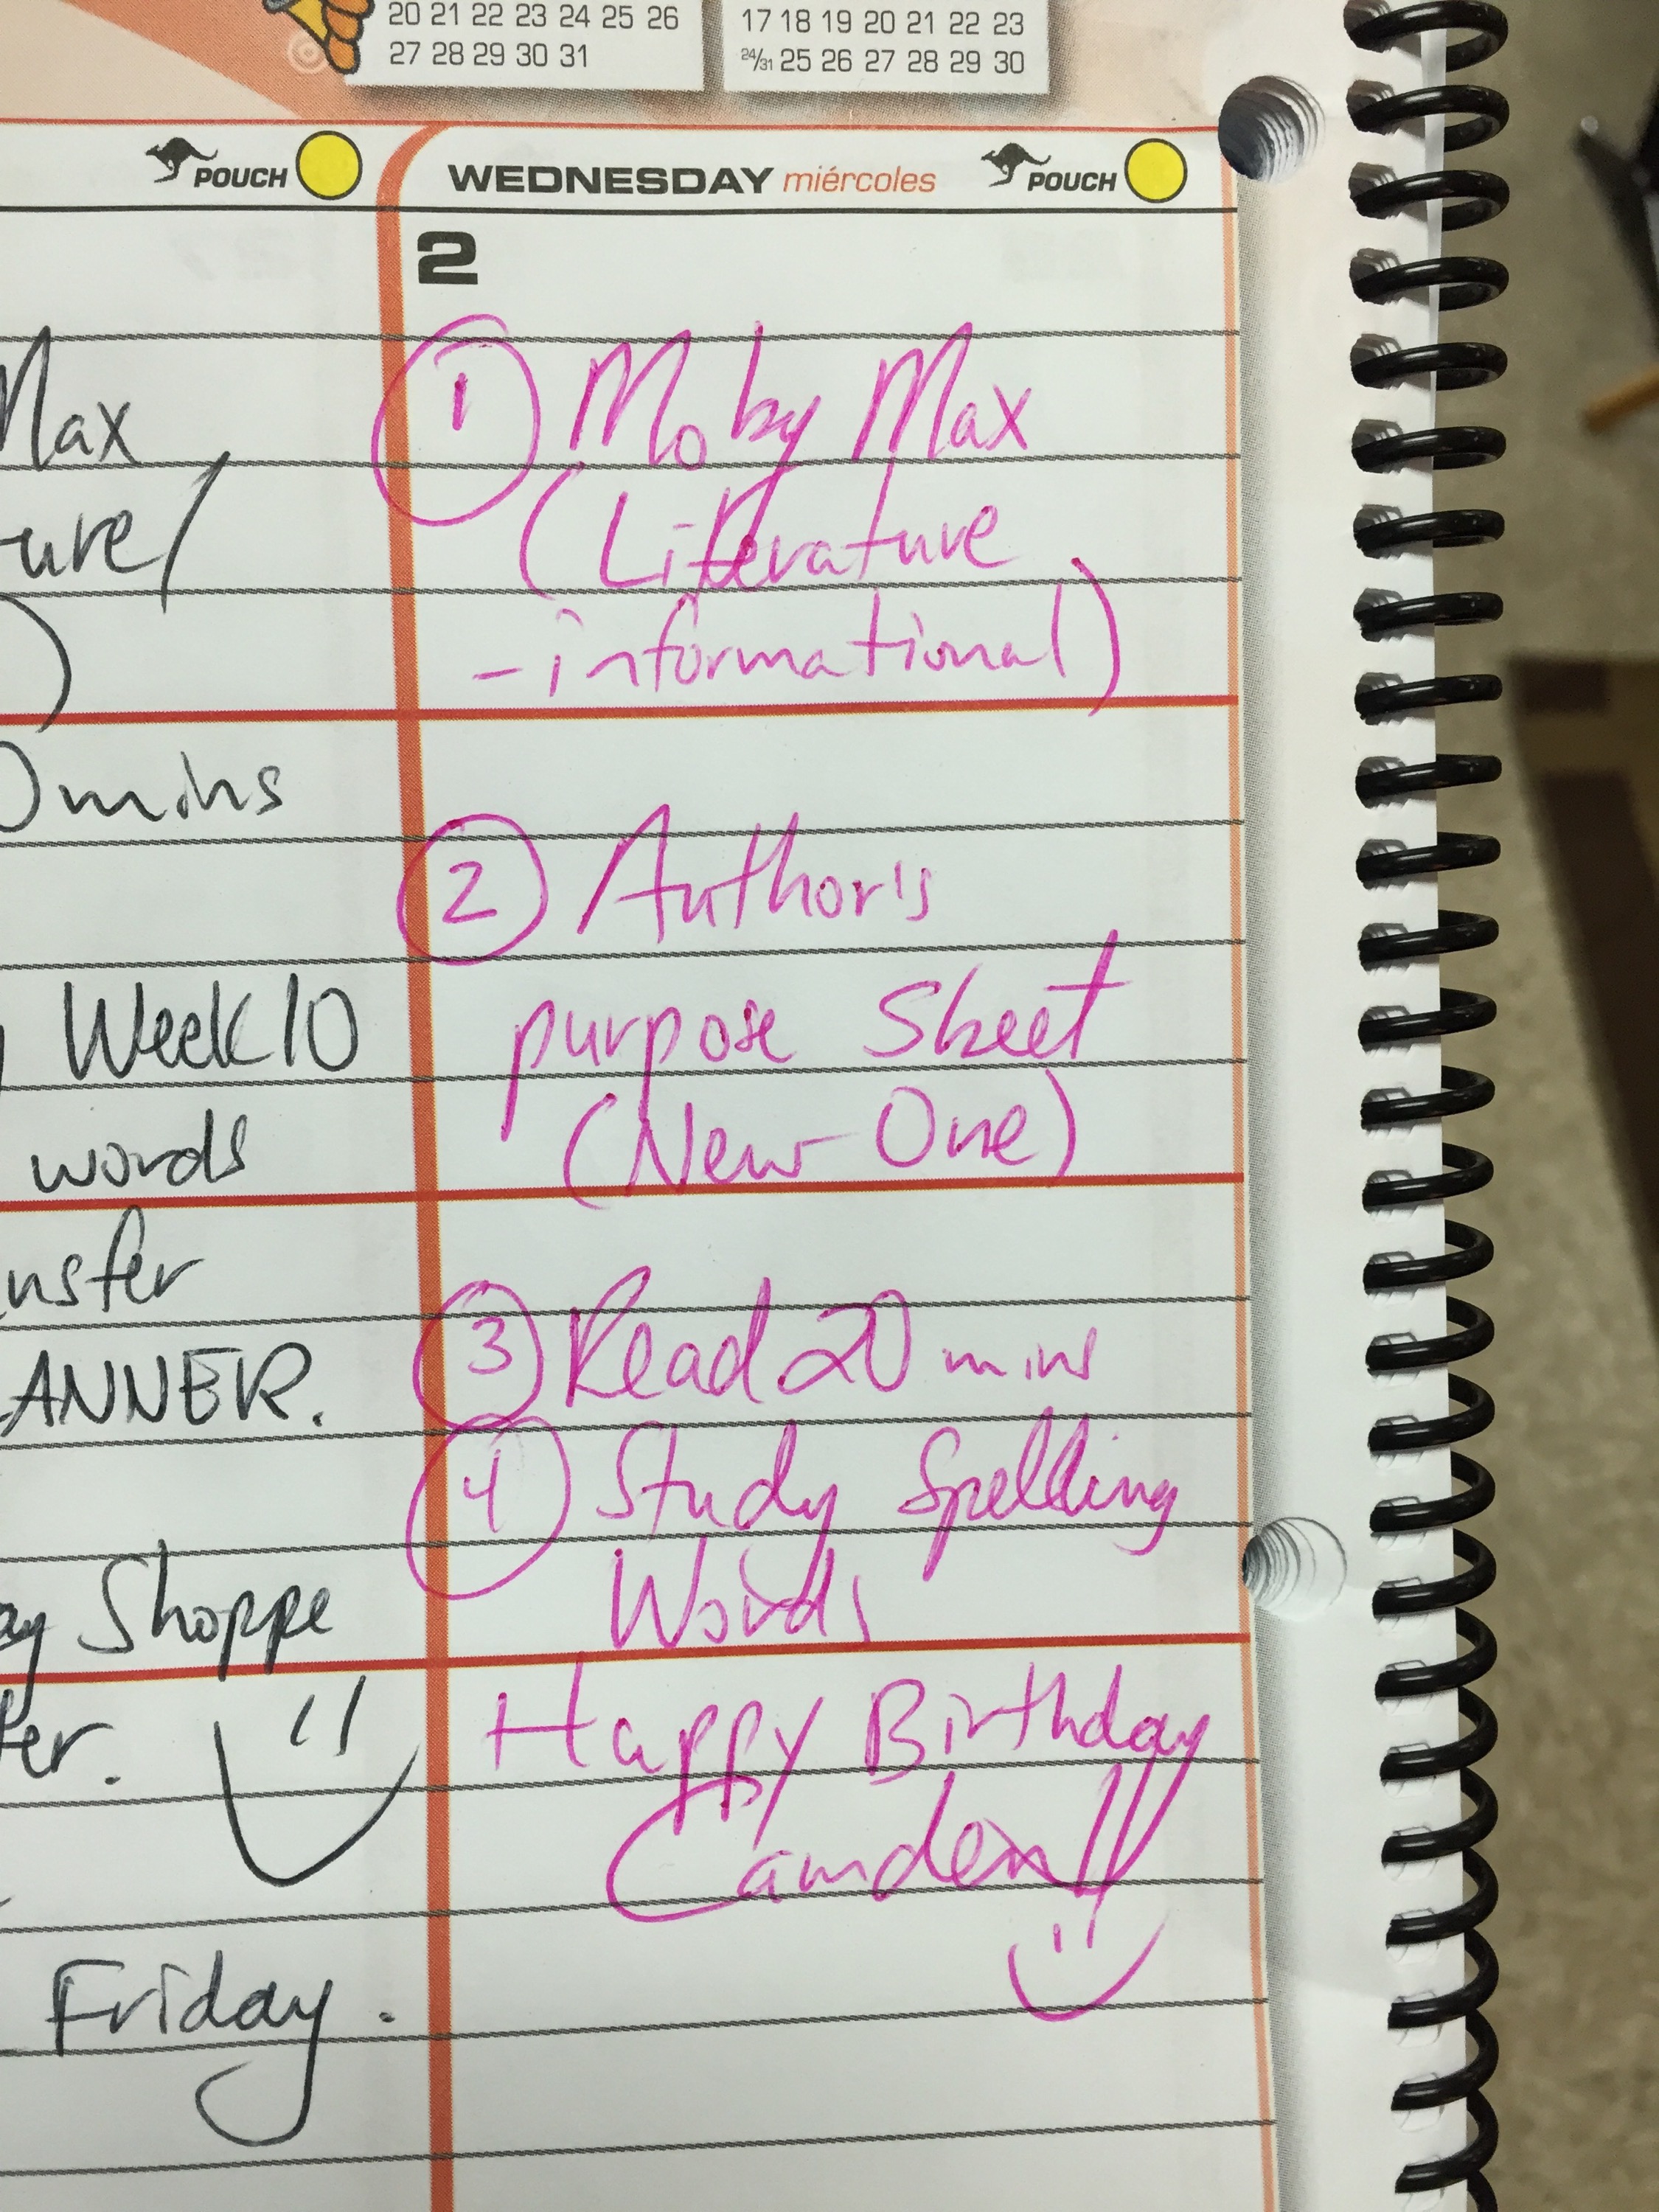 20 21 22 23 24 25 26
27 28 29 30 31
17 18 19 20 21 22 23
24/31 25 26 27 28 29 30
POUCH
Max
ure/
)
0 mins
Week 10
words
nsfer
ANNER.
ay Shoppe
er.
Friday.
WEDNESDAY miércoles POUCH
2
1 Moby Max
(Literature
-informational)
2 Author's
purpose Sheet
(New One)
3 Read 20 mins
4 Study Spelling
Words
Happy Birthday
Camden!!